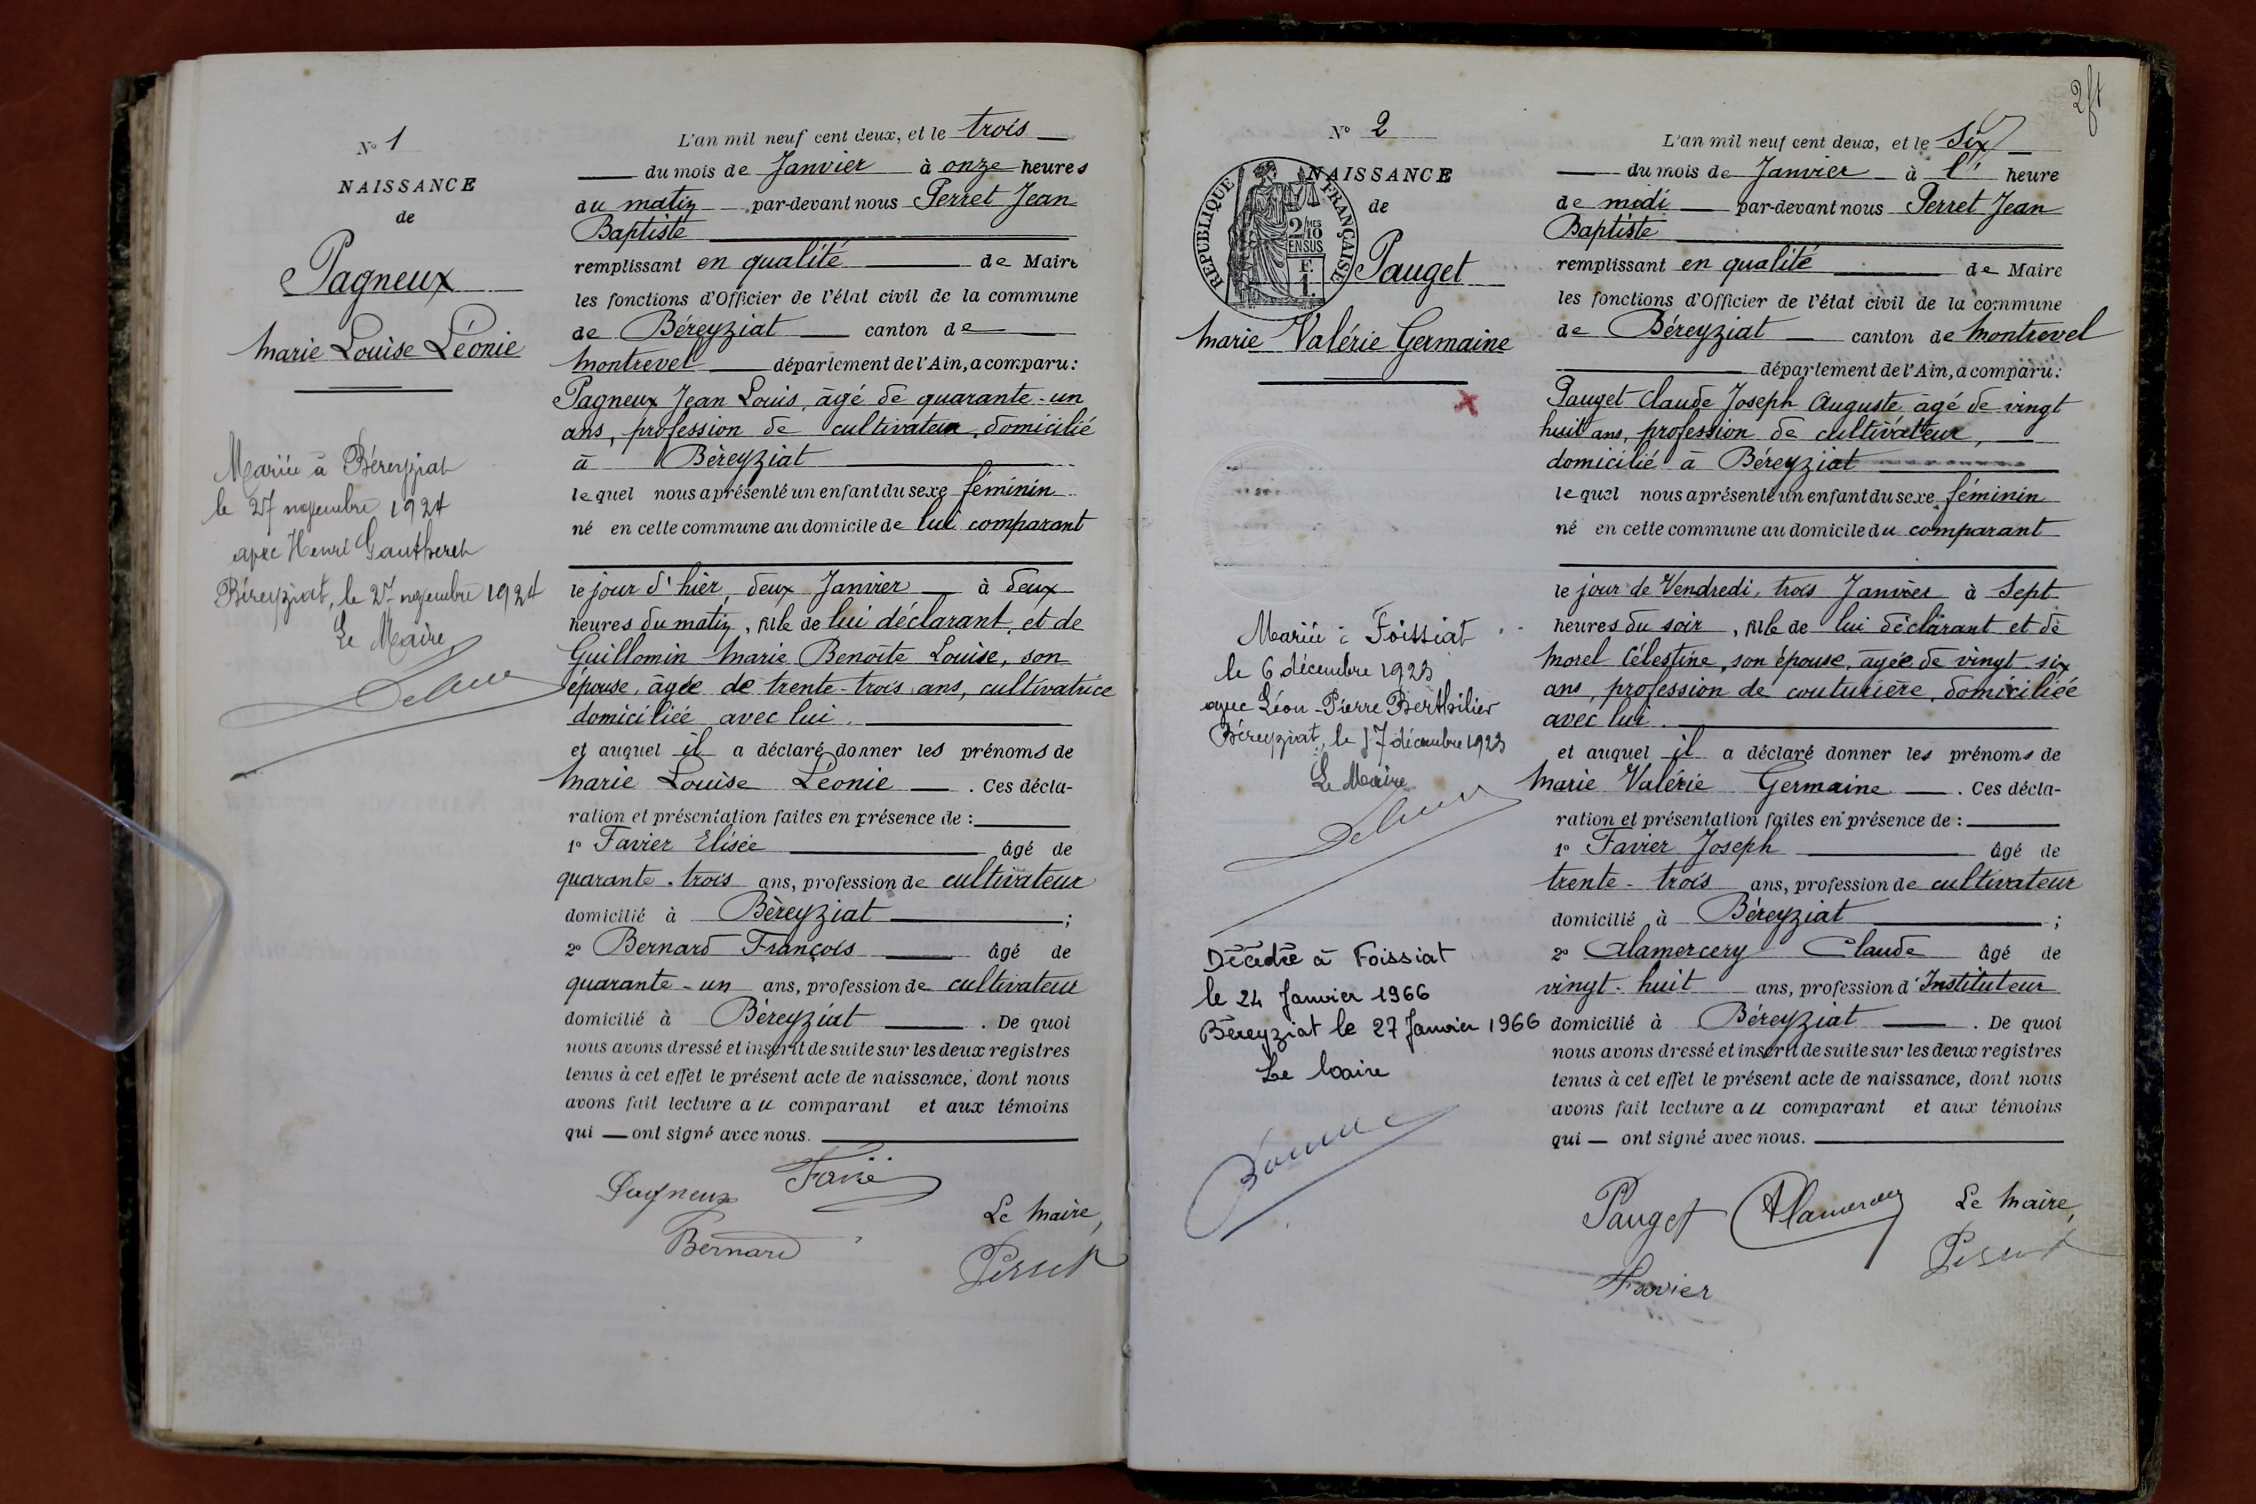 N° 1
NAISSANCE
de
Pagneux
Marie Louise Léonie
Mariée à Béreyziat
le 27 novembre 1924
avec Henri Gautheret
Béreyziat, le 27 novembre 1924
Le Maire
L'an mil neuf cent deux, et le trois
du mois de Janvier à onze heures
du matin par-devant nous Perret Jean
Baptiste
remplissant en qualité de Maire
les fonctions d'Officier de l'état civil de la commune
de Béreyziat canton de
Montrevel département de l'Ain, a comparu:
Pagneux Jean Louis, âgé de quarante-un
ans, profession de cultivateur, domicilié
à Béreyziat
lequel nous a présenté un enfant du sexe féminin
né en cette commune au domicile de lui comparant
le jour d'hier, deux Janvier à deux
heures du matin, fille de lui déclarant, et de
Guillomin Marie Benoîte Louise, son
épouse, âgée de trente-trois ans, cultivatrice
domiciliée avec lui.
et auquel il a déclaré donner les prénoms de
Marie Louise Léonie. Ces décla-
ration et présentation faites en présence de :
1° Favier Elisée âgé de
quarante-trois ans, profession de cultivateur
domicilié à Béreyziat ;
2° Bernard François âgé de
quarante-un ans, profession de cultivateur
domicilié à Béreyziat . De quoi
nous avons dressé et inscrit de suite sur les deux registres
tenus à cet effet le présent acte de naissance, dont nous
avons fait lecture au comparant et aux témoins
qui — ont signé avec nous.
Pagneux Favié
Le Maire,
Bernard
Perret
2 ft
N° 2
NAISSANCE
de
RÉPUBLIQUE FRANÇAISE
2/10 MES
EN SUS
F.
1.
Pauget
Marie Valérie Germaine
Mariée à Foissiat
le 6 décembre 1923
avec Léon-Pierre Berthilier
Béreyziat, le 17 décembre 1923
Le Maire
Décédée à Foissiat
le 24 Janvier 1966
Béreyziat le 27 Janvier 1966
Le Maire
L'an mil neuf cent deux, et le six
du mois de Janvier à l' heure
de midi par-devant nous Perret Jean
Baptiste
remplissant en qualité de Maire
les fonctions d'Officier de l'état civil de la commune
de Béreyziat canton de Montrevel
département de l'Ain, a comparu:
Pauget Claude Joseph Auguste âgé de vingt
huit ans, profession de cultivateur,
domicilié à Béreyziat
lequel nous a présenté un enfant du sexe féminin
né en cette commune au domicile du comparant
le jour de Vendredi, trois Janvier à sept
heures du soir, fille de lui déclarant et de
Morel Célestine, son épouse, âgée de vingt-six
ans, profession de couturière, domiciliée
avec lui.
et auquel il a déclaré donner les prénoms de
Marie Valérie Germaine. Ces décla-
ration et présentation faites en présence de :
1° Favier Joseph âgé de
trente-trois ans, profession de cultivateur
domicilié à Béreyziat ;
2° Alamercery Claude âgé de
vingt-huit ans, profession d'Instituteur
domicilié à Béreyziat . De quoi
nous avons dressé et inscrit de suite sur les deux registres
tenus à cet effet le présent acte de naissance, dont nous
avons fait lecture au comparant et aux témoins
qui — ont signé avec nous.
Pauget Alamercery Le Maire,
Perret
Favier